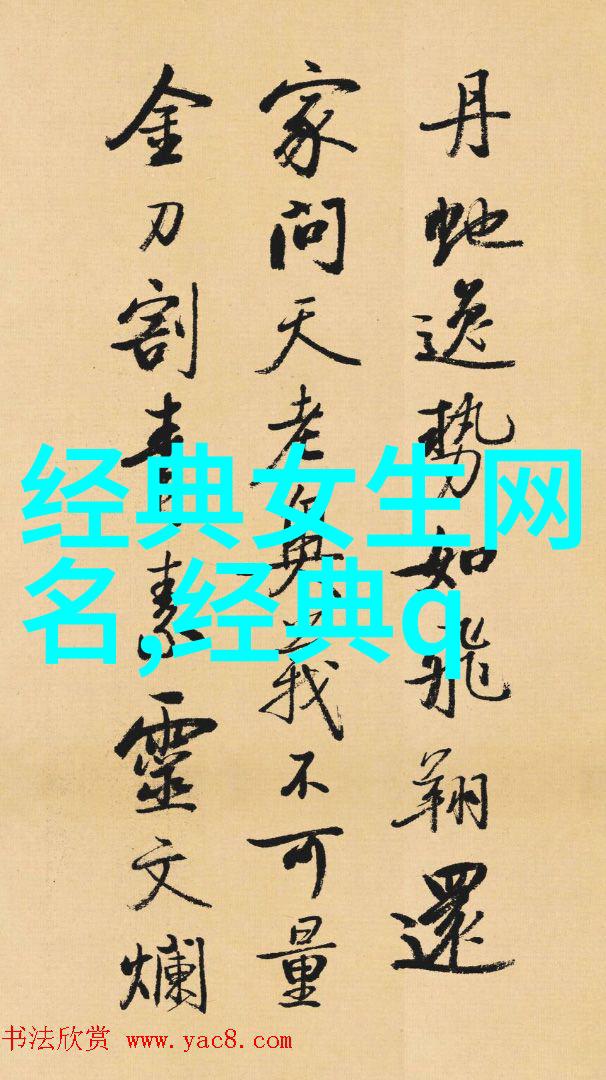 丹虵逸勢如飛翔還
家問天老奥義不可量
金刀割青素靈文爛
经典女生网
名,经典q
书法欣赏 www.yac8.com